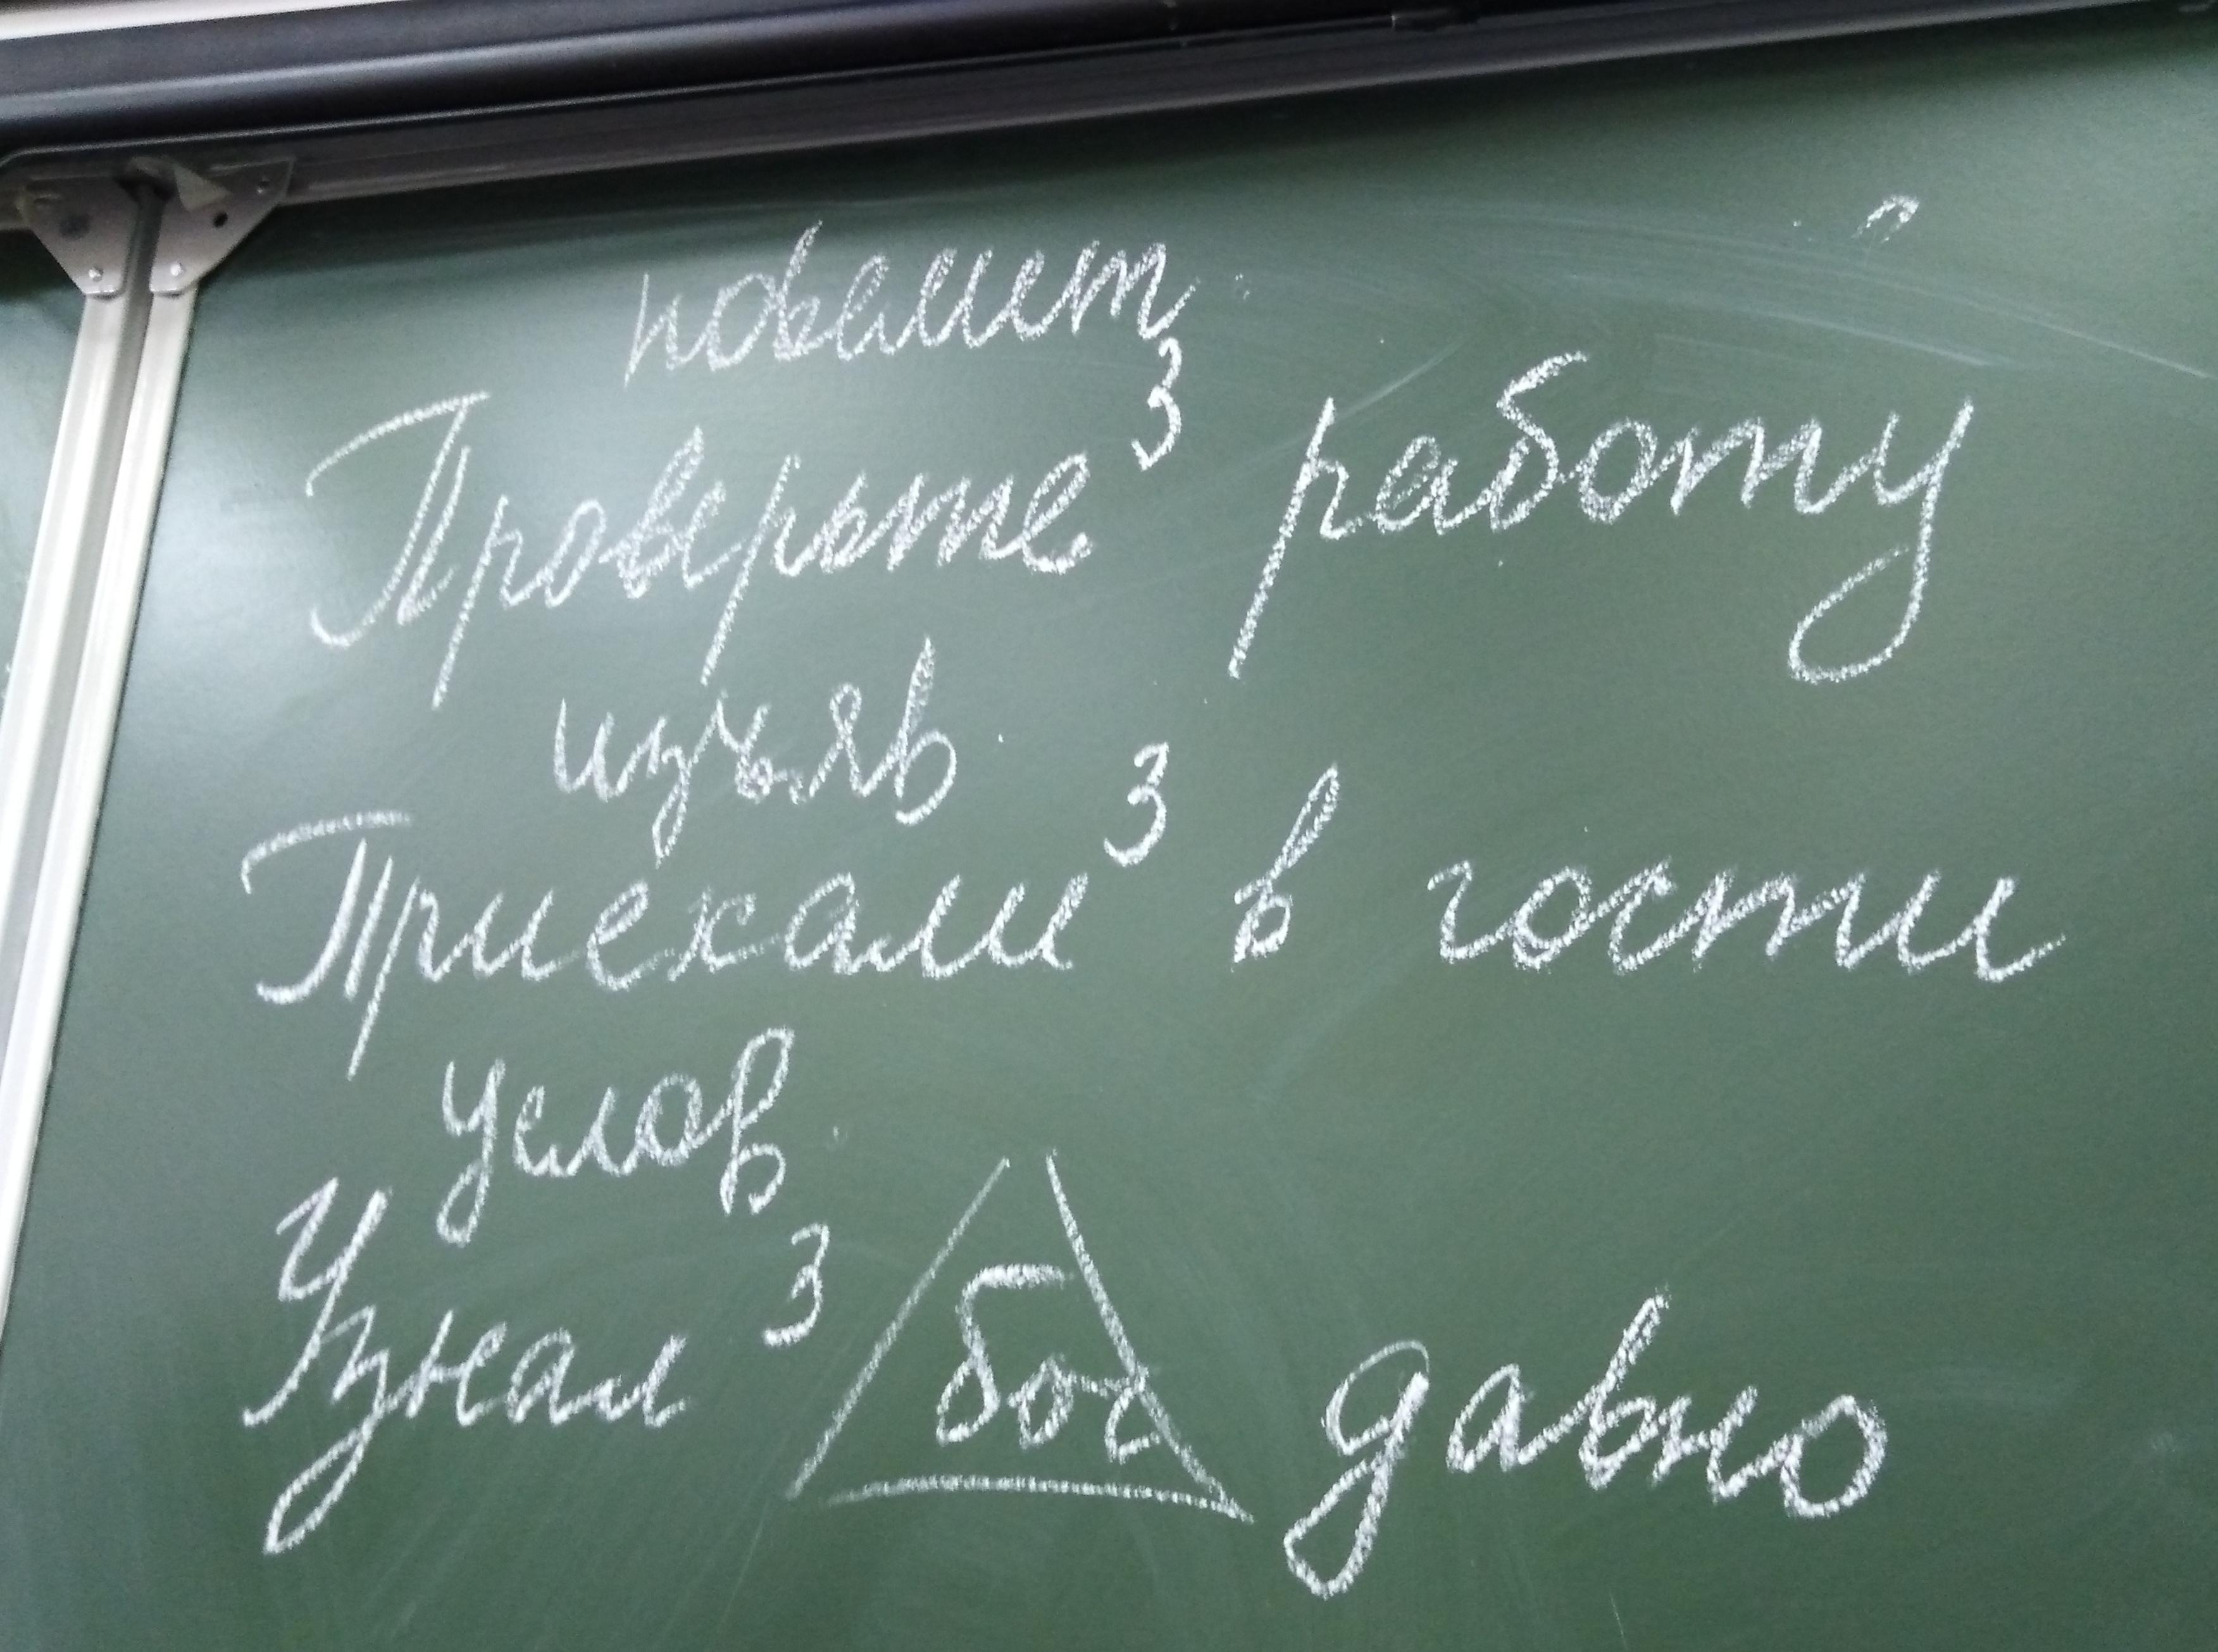 повелит.
Проверьте³ работу
изъяв.
Приехали³ в гости
услов.
Узнал³ бос давно